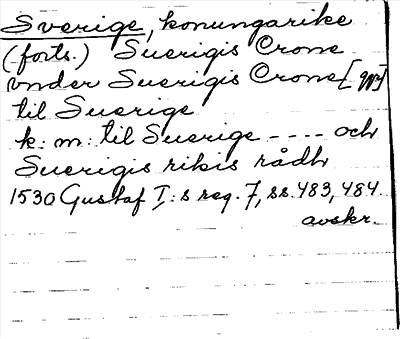 Sverige, konungarike
(forts.) Suerigis Crone
vnder Suerigis Crone [
til Suerige
k: m: til Suerige ---- och
Suerigis rikis rådh
1530 Gustaf I:s reg. 7, ss. 483, 484.
avskr.